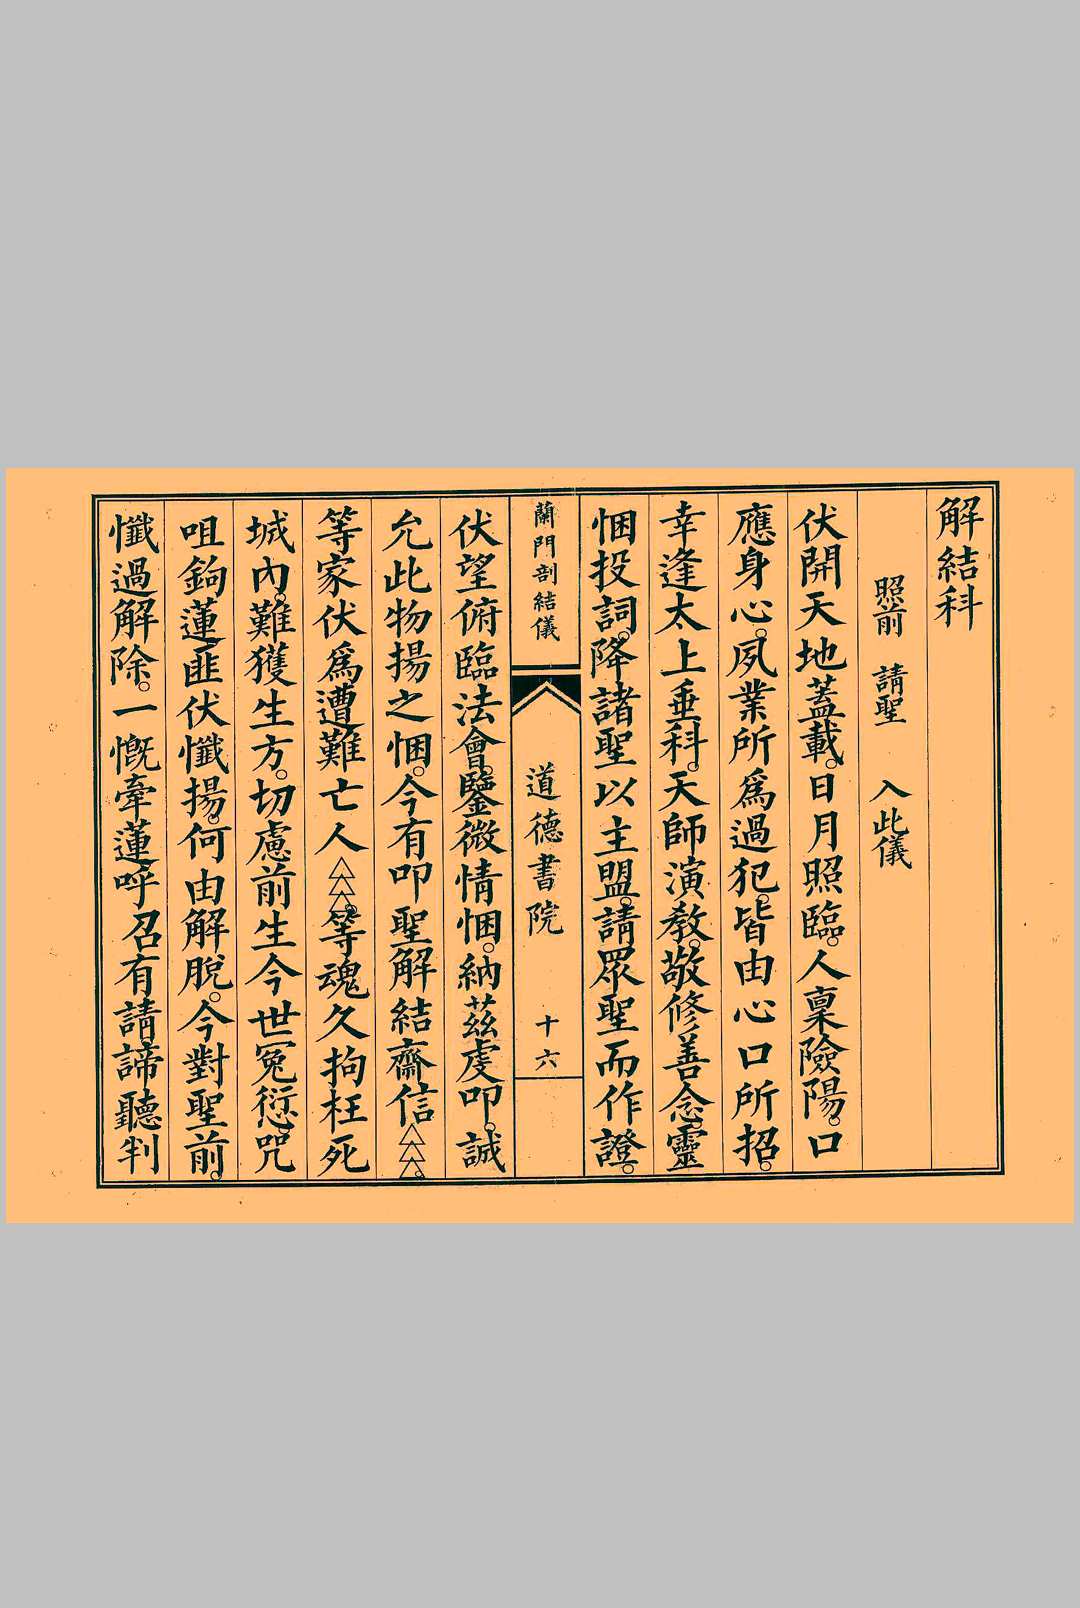 解結科
照前　請聖　入此儀
伏開天地蓋載。日月照臨。人稟險陽。口
應身心。夙業所為過犯。皆由心口所招。
幸逢太上垂科。天師演教。敬修善念。靈
悃投詞。降諸聖以主盟。請眾聖而作證。
蘭門剖結儀　道德書院　十六
伏望俯臨法會。鑒微情悃。納茲虔叩。誠
允此物揚之悃。今有叩聖解結齋信△△△。
等家伏為遭難亡人△△△。等魂久拘枉死
城內。難獲生方。切慮前生今世冤愆。咒
咀鉤蓮匪伏懺揚。何由解脫。今對聖前。
懺過解除。一慨牽蓮呼召有請諦聽判